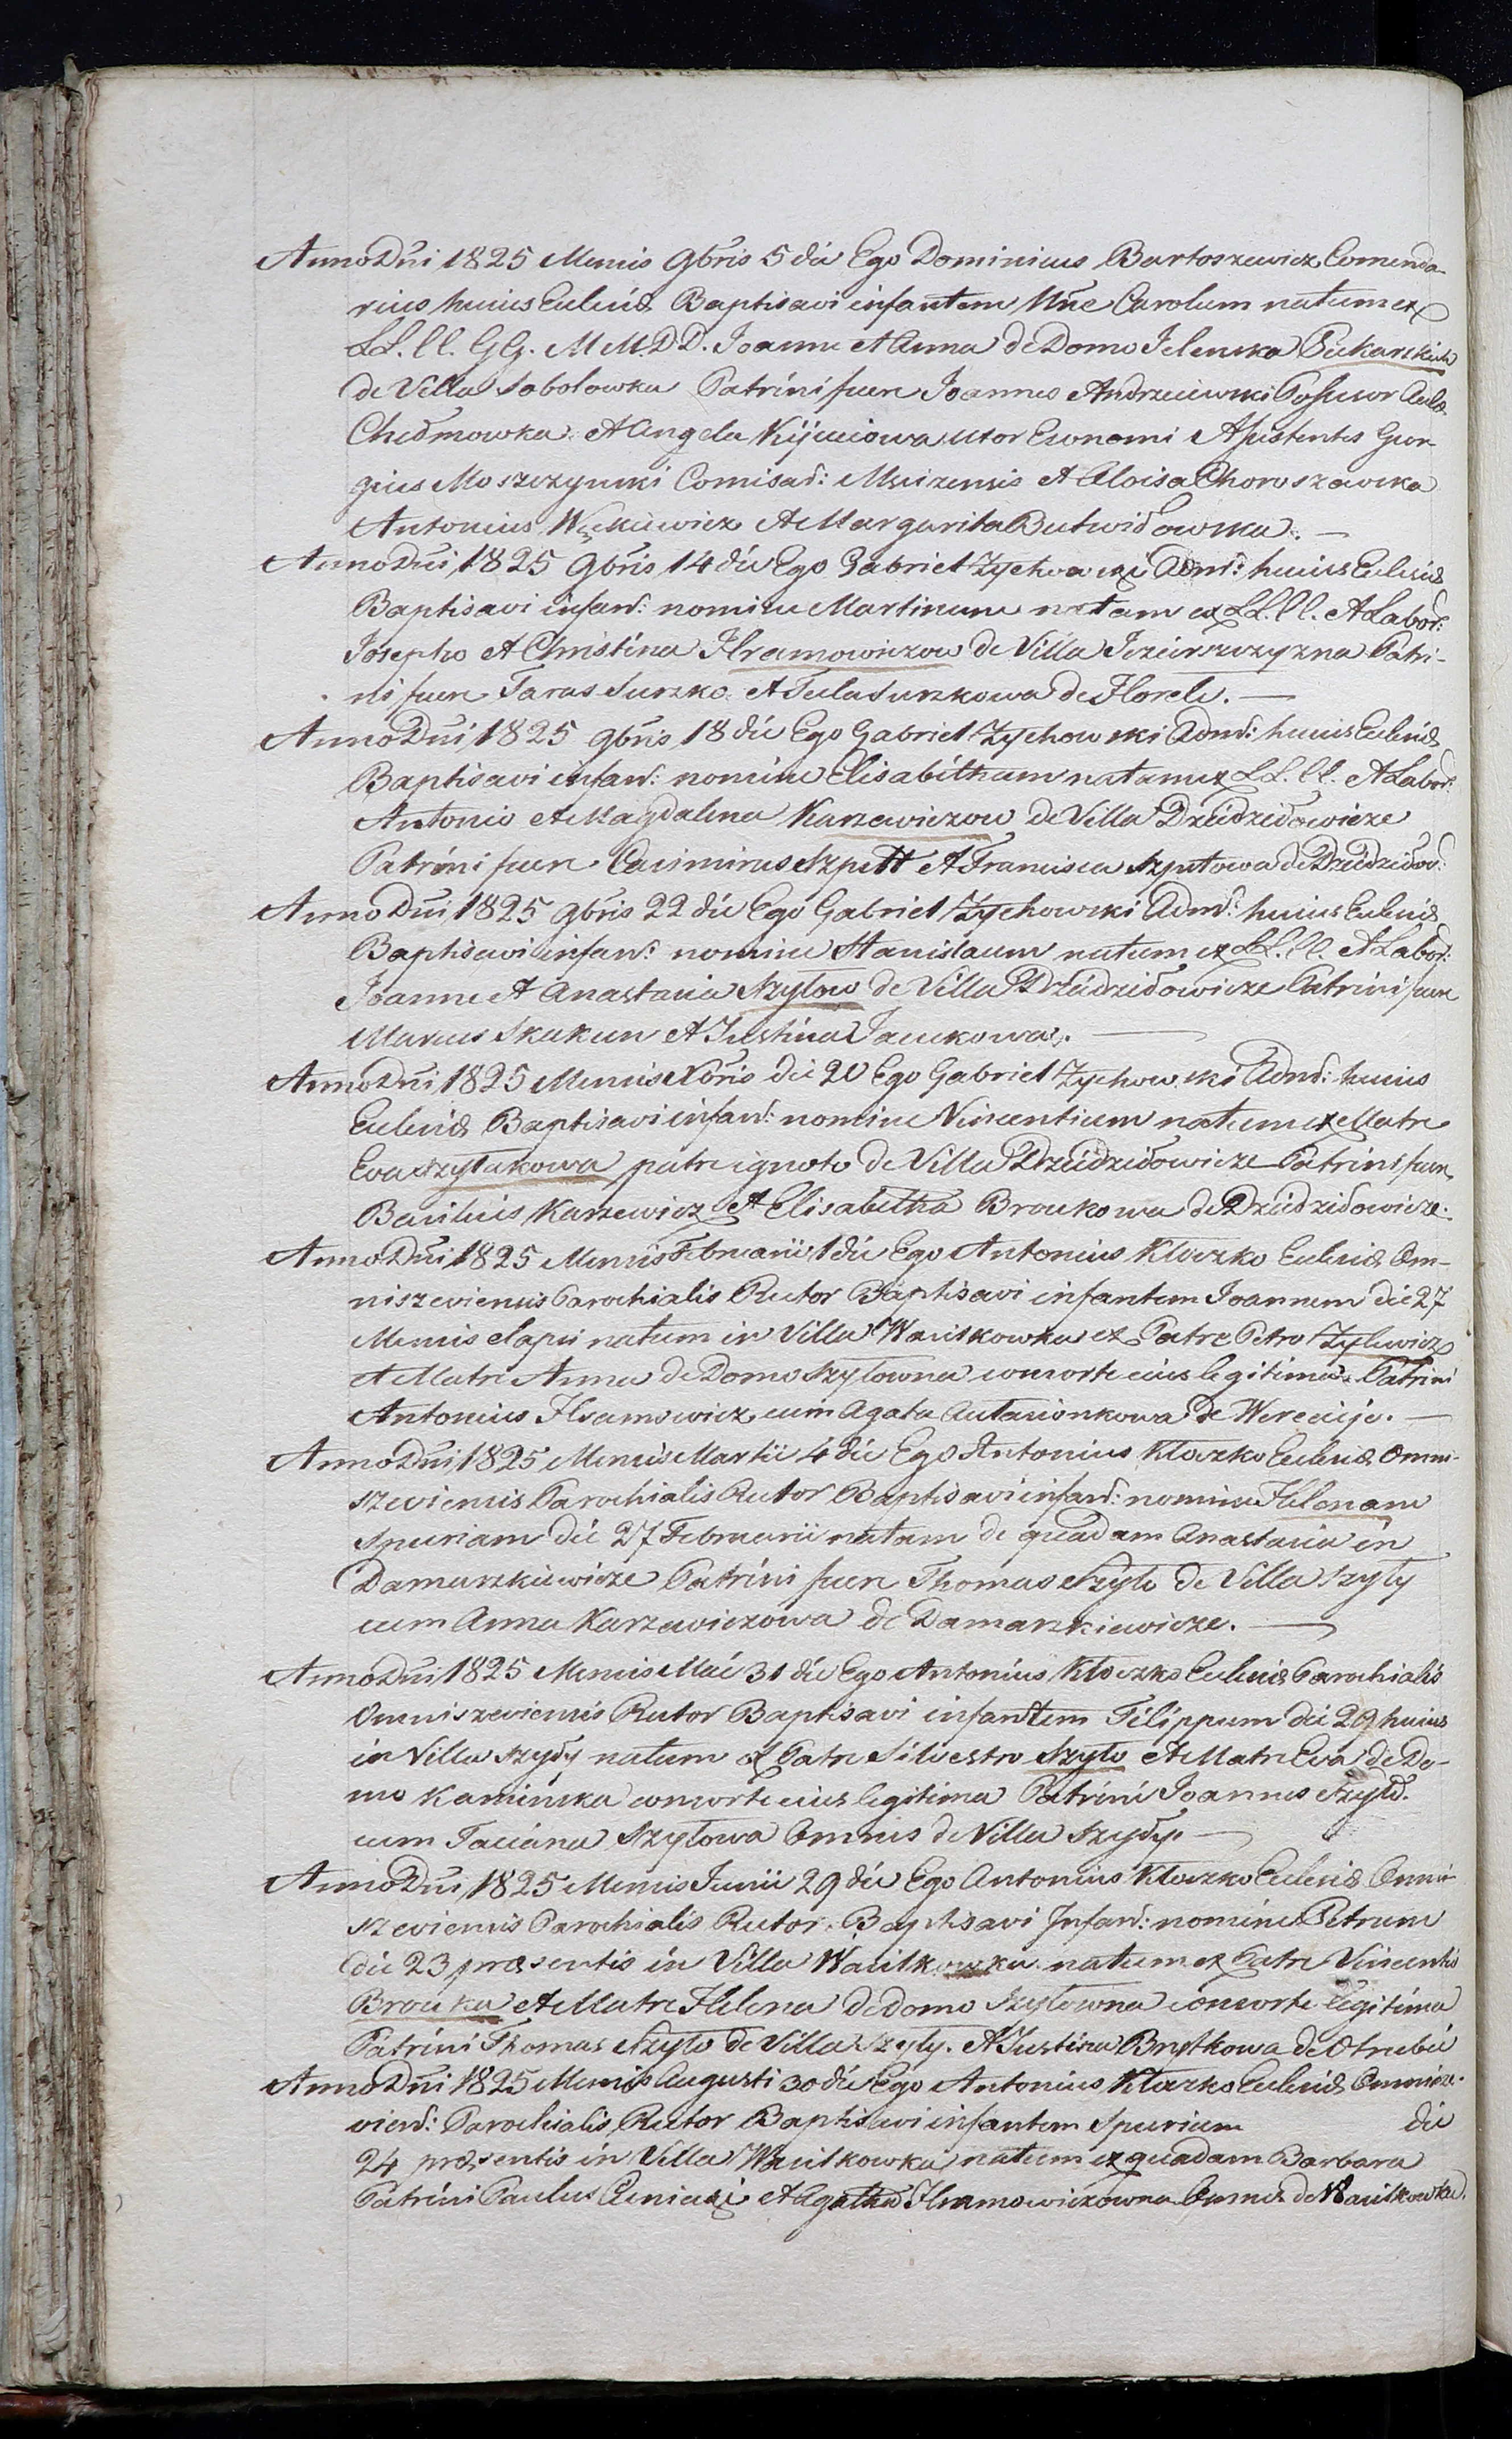 Anno Dñi 1825 Mensis 9bris 5 die Ego Dominicus Bartoszewicz Comenda-
rius huius Eccleiæ Baptisavi infantem Nñe Carolum natum ex
LL. CC. GG. MM. DD. Joanne et Anna de Domo Jelenska
de Villa Sobolowka Patrini fuere Joannes Andrzeiewski Possessor
et Angela Kijuciowa uxor Economi Assistentes Geor-
gius Moszczynski Comisar: et Aloisa Choroszewska
Antonius et Margarita Butwidowska. —
Anno Dñi 1825 9bris 14 die Ego Gabriel Zychowski Admr: huius Eccleiæ
Baptisavi infant: nomine Martinum natum ex LL. CC. et Labor:
Josepho et Christina Hramowiczow de Villa Patri-
ni fuere Taras Suszko et Tecla Suszkowa de
Anno Dñi 1825 9bris 18 die Ego Gabriel Zychowski Admr: huius Eccleiæ
Baptisavi infant: nomine Elisabetham natam ex LL. CC. et Labor:
Antonio et Magdalena Karzewiczow de Villa Dziedzidowicze
Patrini fuere Casimirus Szpett et Francisca Szpetowa de Dziedzidow:
Anno Dñi 1825 9bris 22 die Ego Gabriel Zychowski Admr: huius Eccleiæ
Baptisavi infant: nomine Stanislaum natum ex LL. CC. et Labor:
Joanne et Anastasia Szylow de Villa Dziedzidowicze Patrini fuere
Marcus Skakun et Justina Jacukowa. —
Anno Dñi 1825 Mensis Xbris die 20 Ego Gabriel Zychowski Admr: huius
Eccleiæ Baptisavi infant: nomine Vincentium natum ex Matre
Eva Szylakowa patre ignoto de Villa Dziedzidowicze Patrini fuere
Basilius Karzewicz et Elisabetha Broukowa de Dziedzidowicze.
Anno Dñi 1825 Mensis Februarii 1 die Ego Antonius Kloczko Eccleiæ Om-
niszeviensis Parochialis Rector Baptisavi infantem Joannem die 27
Mensis elapsi natum in Villa Wasilkowka ex Patre Petro Zylewicz
et Matre Anna de Domo Szylowna consorte eius legitima. Patrini
Antonius Hramowicz cum Agata Autasionkowa de Werecije. —
Anno Dñi 1825 Mensis Martii 4 die Ego Antonius Kloczko Eccleiæ Omni-
szeviensis Parochialis Rector Baptisavi infant: nomine Helenam
Spuriam die 27 Februarii natam de quadam Anastasia in
Damaszkiewicze Patrini fuere Thomas Szylo de Villa Szyly
cum Anna Karzewiczowa de Damaszkiewicze. —
Anno Dñi 1825 Mensis Maii 31 die Ego Antonius Kloczko Eccleiæ Parochialis
Omniszeviensis Rector Baptisavi infantem Filippum die 29 huius
in Villa Szyly natum ex Patre Silvestro Szylo et Matre Eva de Do-
mo Kaminska consorte eius legitima Patrini Joannes Szylo.
cum Taciana Szylowa Omnes de Villa Szyly. —
Anno Dñi 1825 Mensis Junii 29 die Ego Antonius Kloczko Eccleiæ Omni-
szeviensis Parochialis Rector. Baptisavi Infant: nomine Petrum
die 23 præsentis in Villa Wasilkowka natum ex Patre Vincentio
Brouka et Matre Helena de domo Szylowna consorte legitima
Patrini Thomas Szylo de Villa Szyly. et Justina Brytkowa de Otrubi
Anno Dñi 1825 Mensis Augusti 30 die Ego Antonius Kloczko Eccleiæ Omnisze-
viens: Parochialis Rector Baptisavi infantem Spurium die
24 præsentis in Villa Wasilkowka natum ex quadam Barbara
Patrini Paulus et Agatha Hramowiczowna Omnes de Wasilkowka.